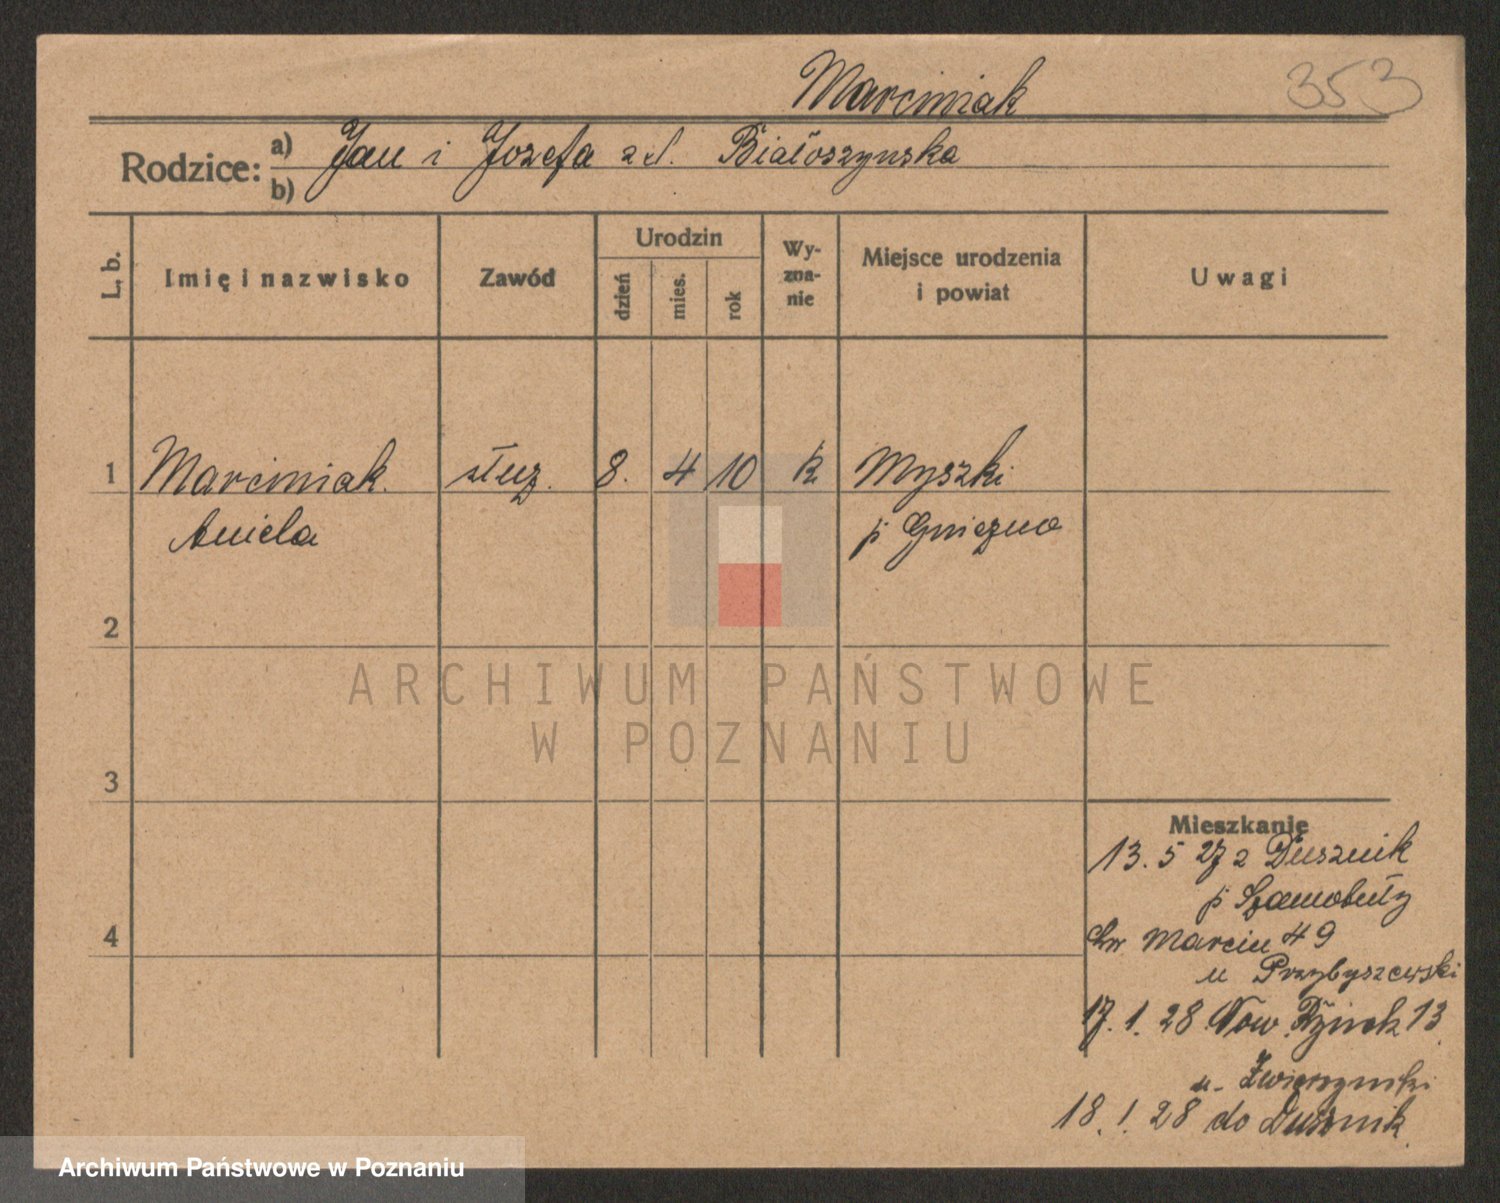 Marciniak 353
Rodzice: a) Jan i Józefa z d. Białoszyńska
b)
L. b. Imię i nazwisko Zawód Urodzin dzień mies. rok Wy-zna-nie Miejsce urodzenia i powiat Uwagi
1 Marciniak służ. 8. 4 10 k. Myszki
Aniela p. Gniezno
2
ARCHIWUM PAŃSTWOWE
W POZNANIU
3
Mieszkanie
13. 5 27 z Dusznik
p. Szamotuły
4
Św. Marcin 49
u Przybyszewski
17. 1. 28 Now Rynek 13
u. Zwierzyński
18. 1. 28 do Dusznik
Archiwum Państwowe w Poznaniu